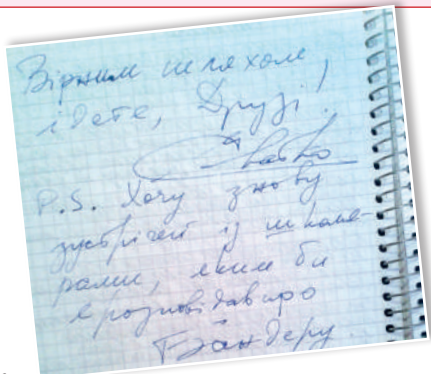 Вірним шляхом
ідете, Друзі!
P.S. Хочу знову
зустрічей із школя-
рами, яким би
я розповідав про
Бандеру.